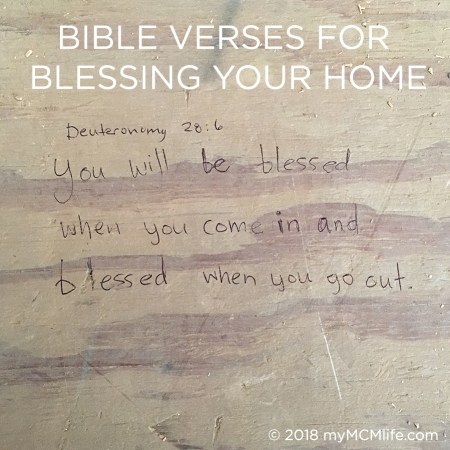 BIBLE VERSES FOR
BLESSING YOUR HOME
Deuteronomy 28:6
You will be blessed
when you come in and
blessed when you go out.
© 2018 myMCMlife.com